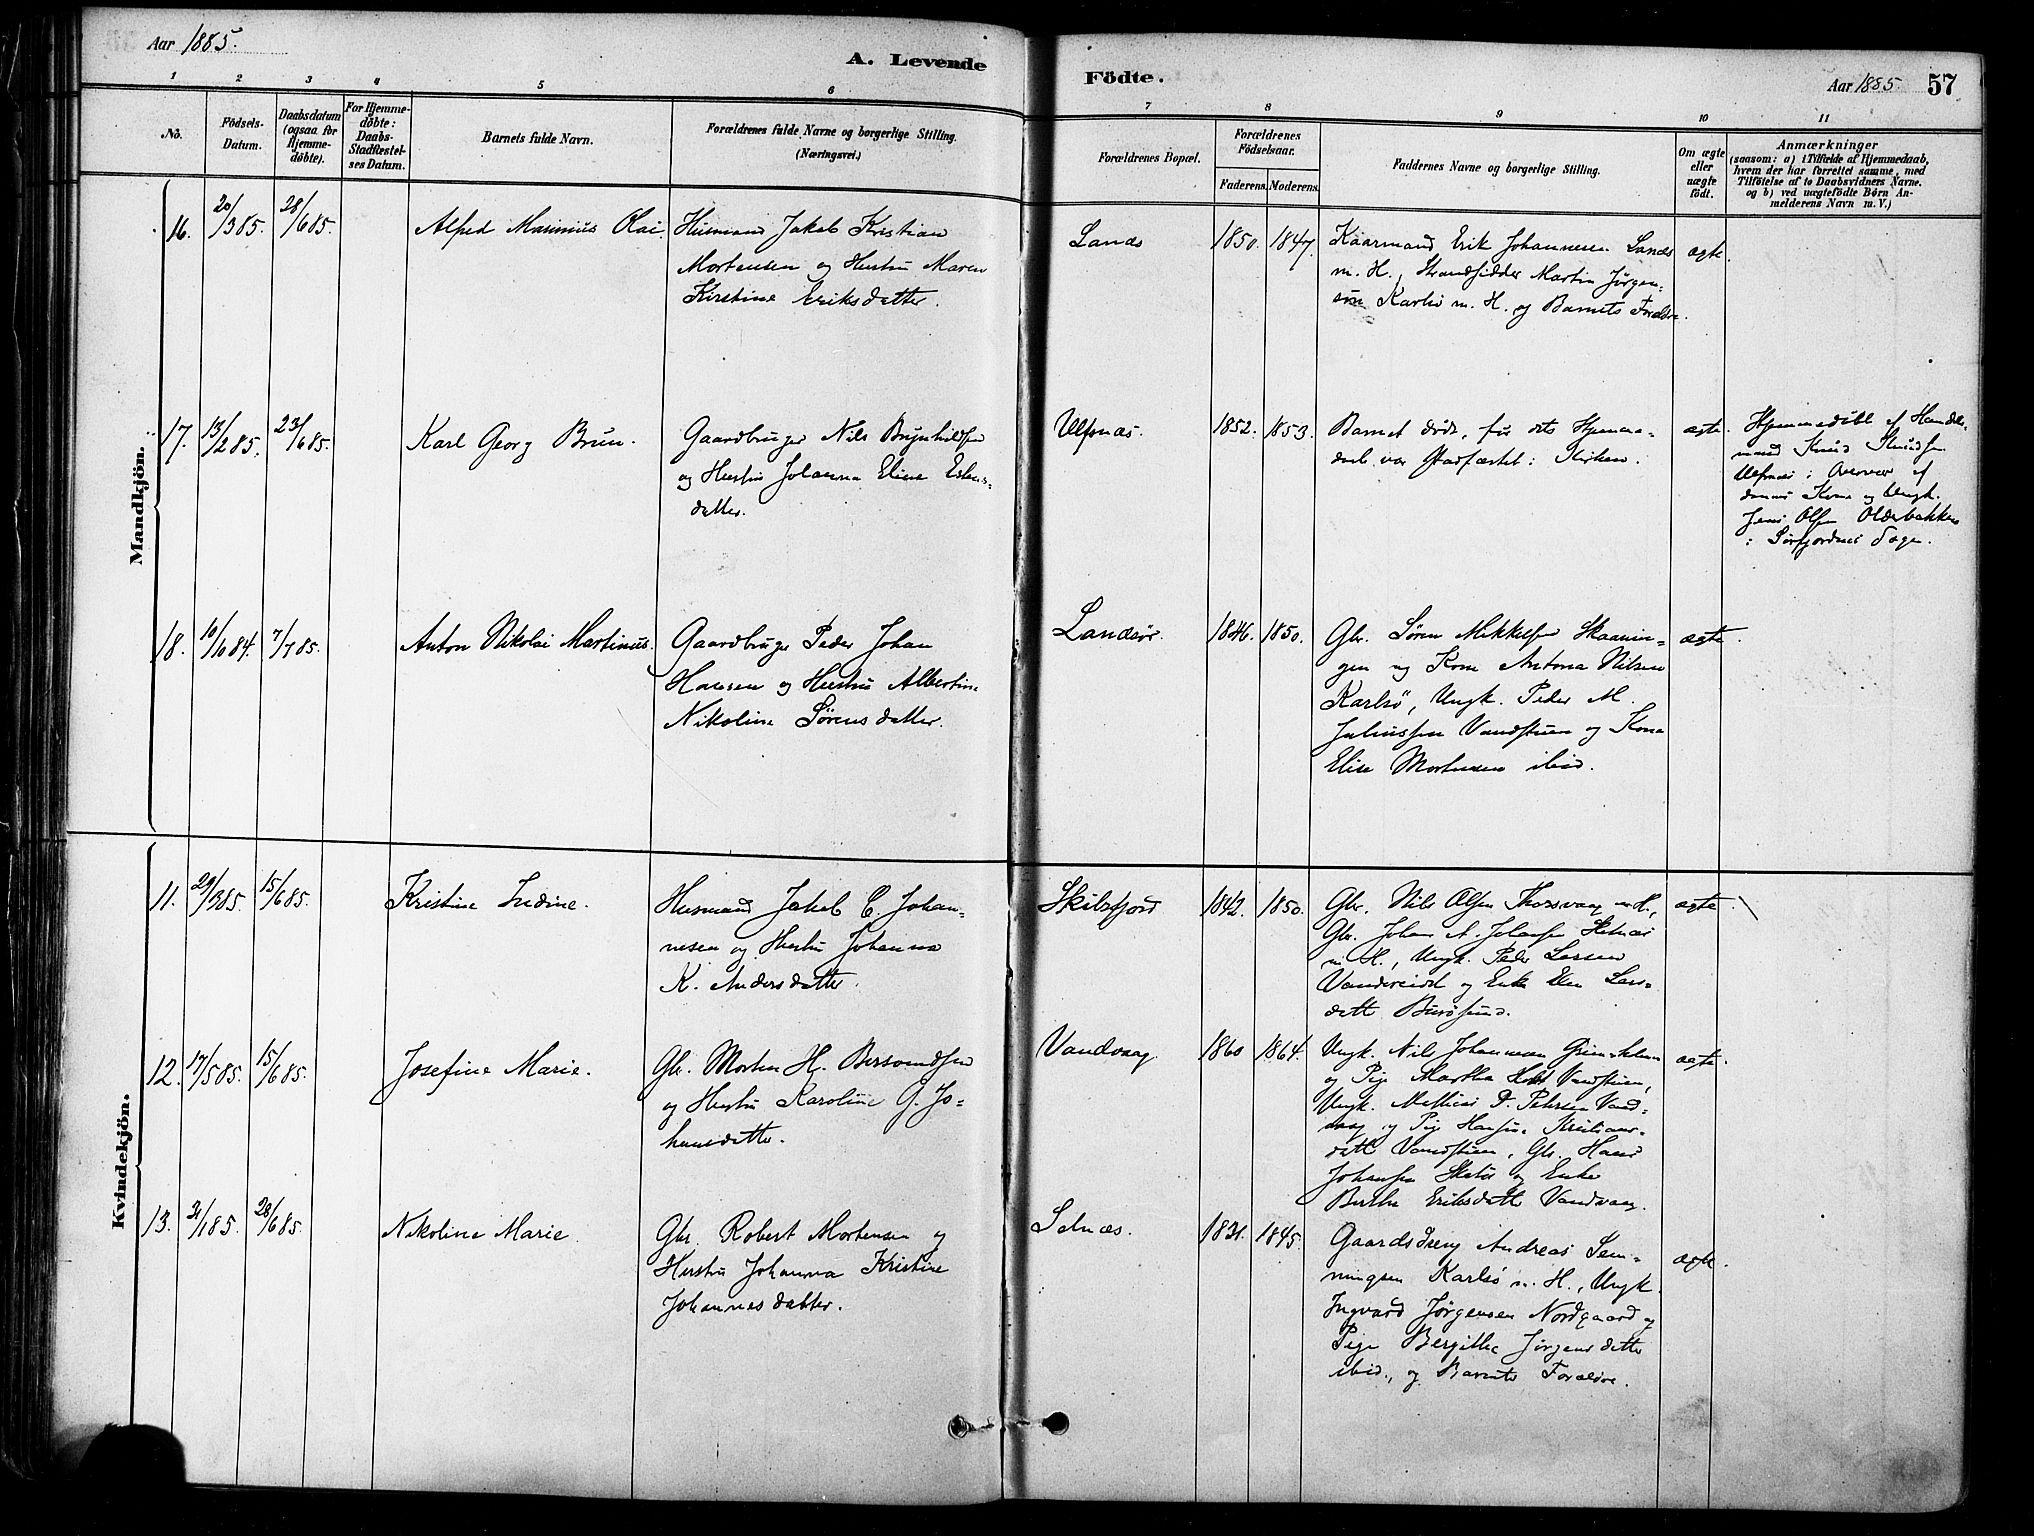 Aar 1885.
A. Levende
Födte.
Aar 1885.
57
1 2 3 4 5 6 7 8 9 10 11
No.
Födsels-
Datum.
Daabsdatum
(ogsaa for
Hjemme-
döbte).
For Hjemme-
döbte:
Daabs-
Stadfæstel-
ses Datum.
Barnets fulde Navn.
Forældrenes fulde Navne og borgerlige Stilling.
(Næringsvei.)
Forældrenes Bopæl.
Forældrenes
Födselsaar.
Faderens. Moderens.
Faddernes Navne og borgerlige Stilling.
Om ægte
eller
uægte
födt.
Anmærkninger
(saasom: a) i Tilfælde af Hjemmedaab,
hvem der har forrettet samme, med
Tilföielse af to Daabsvidners Navne.
og b) ved uægtefödte Börn An-
melderens Navn m. V.)
Mandkjön.
16.
20/3 85.
28/6 85.
Alfred Marinius Olai
Husmand Jakob Kristian
Mortensen og Hustru Maren
Kirstine Eriksdatter.
Lanæs
1850. 1847.
Kaarmand Erik Johannesen Lanæs
m. H., Strandsidder Martin Jørgen-
sen Karlsö m. H. og Barnets Forældre.
ægte.
17.
13/2 85.
23/6 85.
Karl Georg Brun.
Gaardbruger Nils Brynhildsen
og Hustru Johanna Eline Estens-
datter.
Ulfsnæs.
1852. 1853.
Barnet döde, för dets Hjemme-
daab var stadfæstet i Kirken.
ægte.
Hjemmedöbt af Handels-
mand Knud Knudsen
Ulfsnæs i Overvær af
dennes Kone og Ungk.
Jens Olsen Olderbakken
i Sörfjordnes Sogn.
18.
10/6 84.
7/7 85.
Anton Nikolai Martinus.
Gaardbruger Peder Johan
Hansen og Hustru Albertine
Nikoline Sørensdatter.
Landsör.
1846. 1850.
Gbr. Søren Mikkelsen Skaanin-
gen og Kone Antona Nilsen
Karlsö, Ungk. Peder M.
Juliussen Vandstuen og Kone
Elise Mortensen ibid.
ægte.
Kvindekjön.
11.
29/3 85.
15/6 85.
Kristine Indine.
Husmand Jakob C. Johan-
nesen og Hustru Johanna
K. Andersdatter.
Skibsfjord
1842. 1850.
Gbr. Nils Olsen Thorsvaag m. H.,
Gbr. Johan A. Johansen
m. H., Ungk. Peder Larsen
og Enke Lars-
datt Burösund.
ægte.
12.
17/5 85.
15/6 85.
Josefine Marie.
Gbr. Morten H. Bersvendsen
og Hustru Karoline G. Jo-
hansdatter.
Vandvaag.
1860 1864.
Ungk. Nils Johannesen
og Pige Martha Vandstuen,
Ungk. Mathias P. Petersen Vand-
vaag og Pige Kristians-
datt Vandstuen, Gbr. Hans
Johansen og Enke
Berthe Eriksdatt Vandvaag.
ægte.
13.
31/1 85.
28/6 85.
Nikoline Marie.
Gbr. Robert Mortensen og
Hustru Johanna Kristine
Johannesdatter.
Selnæs.
1831. 1845.
Gaardsdreng Andreas Sem-
mingsen Karlsö m. H., Ungk.
Ingvard Jørgensen Nordgaard og
Pige Bergitha Jørgensdatter
ibid., og Barnets Forældre.
ægte.